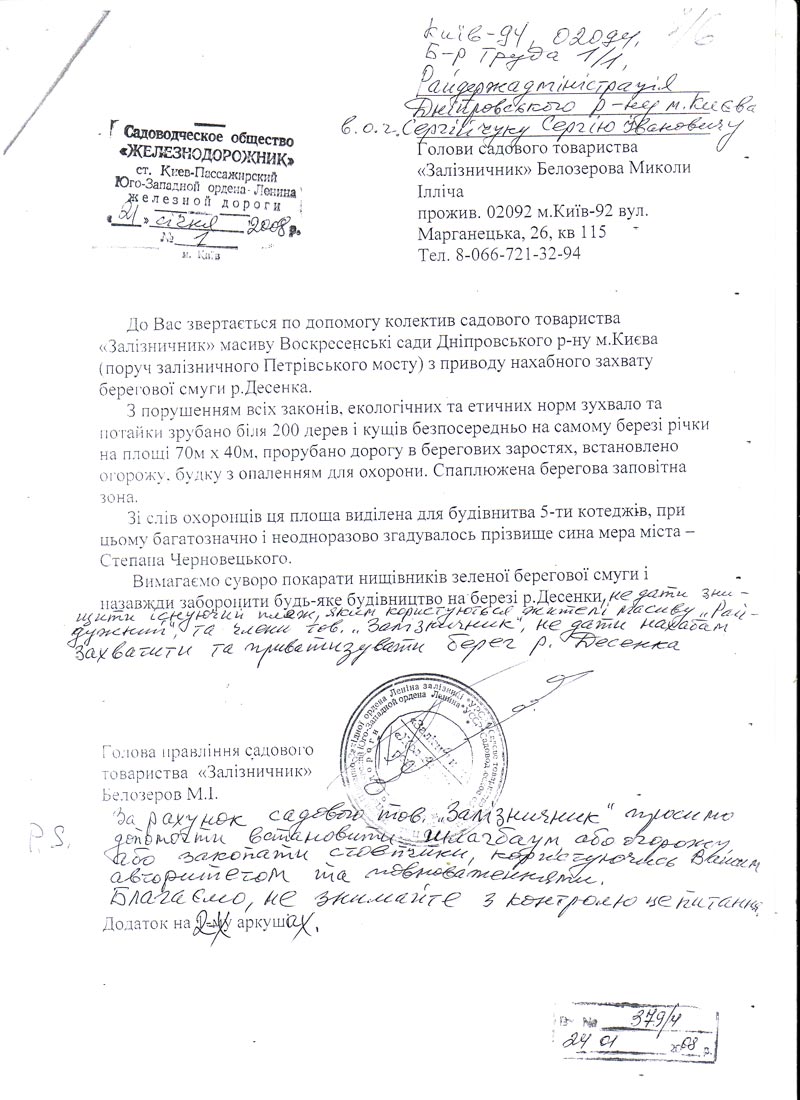 Київ-94, 02094,
Б-р Труда 1/1,
Райдержадміністрація
Дніпровського р-ну м.Києва
в.о.г. Сергійчуку Сергію Івановичу
Садоводческое общество
«ЖЕЛЕЗНОДОРОЖНИК»
ст. Киев-Пассажирский
Юго-Западной ордена Ленина
железной дороги
«21» січня 2008 р.
№ 1
м. Київ
Голови садового товариства
«Залізничник» Белозерова Миколи
Ілліча
прожив. 02092 м.Київ-92 вул.
Марганецька, 26, кв 115
Тел. 8-066-721-32-94
До Вас звертається по допомогу колектив садового товариства
«Залізничник» масиву Воскресенські сади Дніпровського р-ну м.Києва
(поруч залізничного Петрівського мосту) з приводу нахабного захвату
берегової смуги р.Десенка.
З порушенням всіх законів, екологічних та етичних норм зухвало та
потайки зрубано біля 200 дерев і кущів безпосередньо на самому березі річки
на площі 70м х 40м, прорубано дорогу в берегових заростях, встановлено
огорожу, будку з опаленням для охорони. Спаплюжена берегова заповітна
зона.
Зі слів охоронців ця площа виділена для будівнитва 5-ти котеджів, при
цьому багатозначно і неодноразово згадувалось прізвище сина мера міста –
Степана Черновецького.
Вимагаємо суворо покарати нищівників зеленої берегової смуги і
назавжди заборонити будь-яке будівництво на березі р.Десенки, не дати зни-
щити існуючий пляж, яким користуються жителі масиву „Рай-
дужний", та члени тов. „Залізничник", не дати нахабам
захватити та приватизувати берег р. Десенка
Голова правління садового
товариства «Залізничник»
Белозеров М.І.
P.S. За рахунок садового тов. „Залізничник" просимо
допомогти встановити шлагбаум або огорожу,
або закопати стовпчики, користуючись Вашим
авторитетом та повноваженнями.
Благаємо, не знімайте з контролю це питання,
Додаток на 2-х аркушах.
Вх № 379/4
24 01 2008 р.